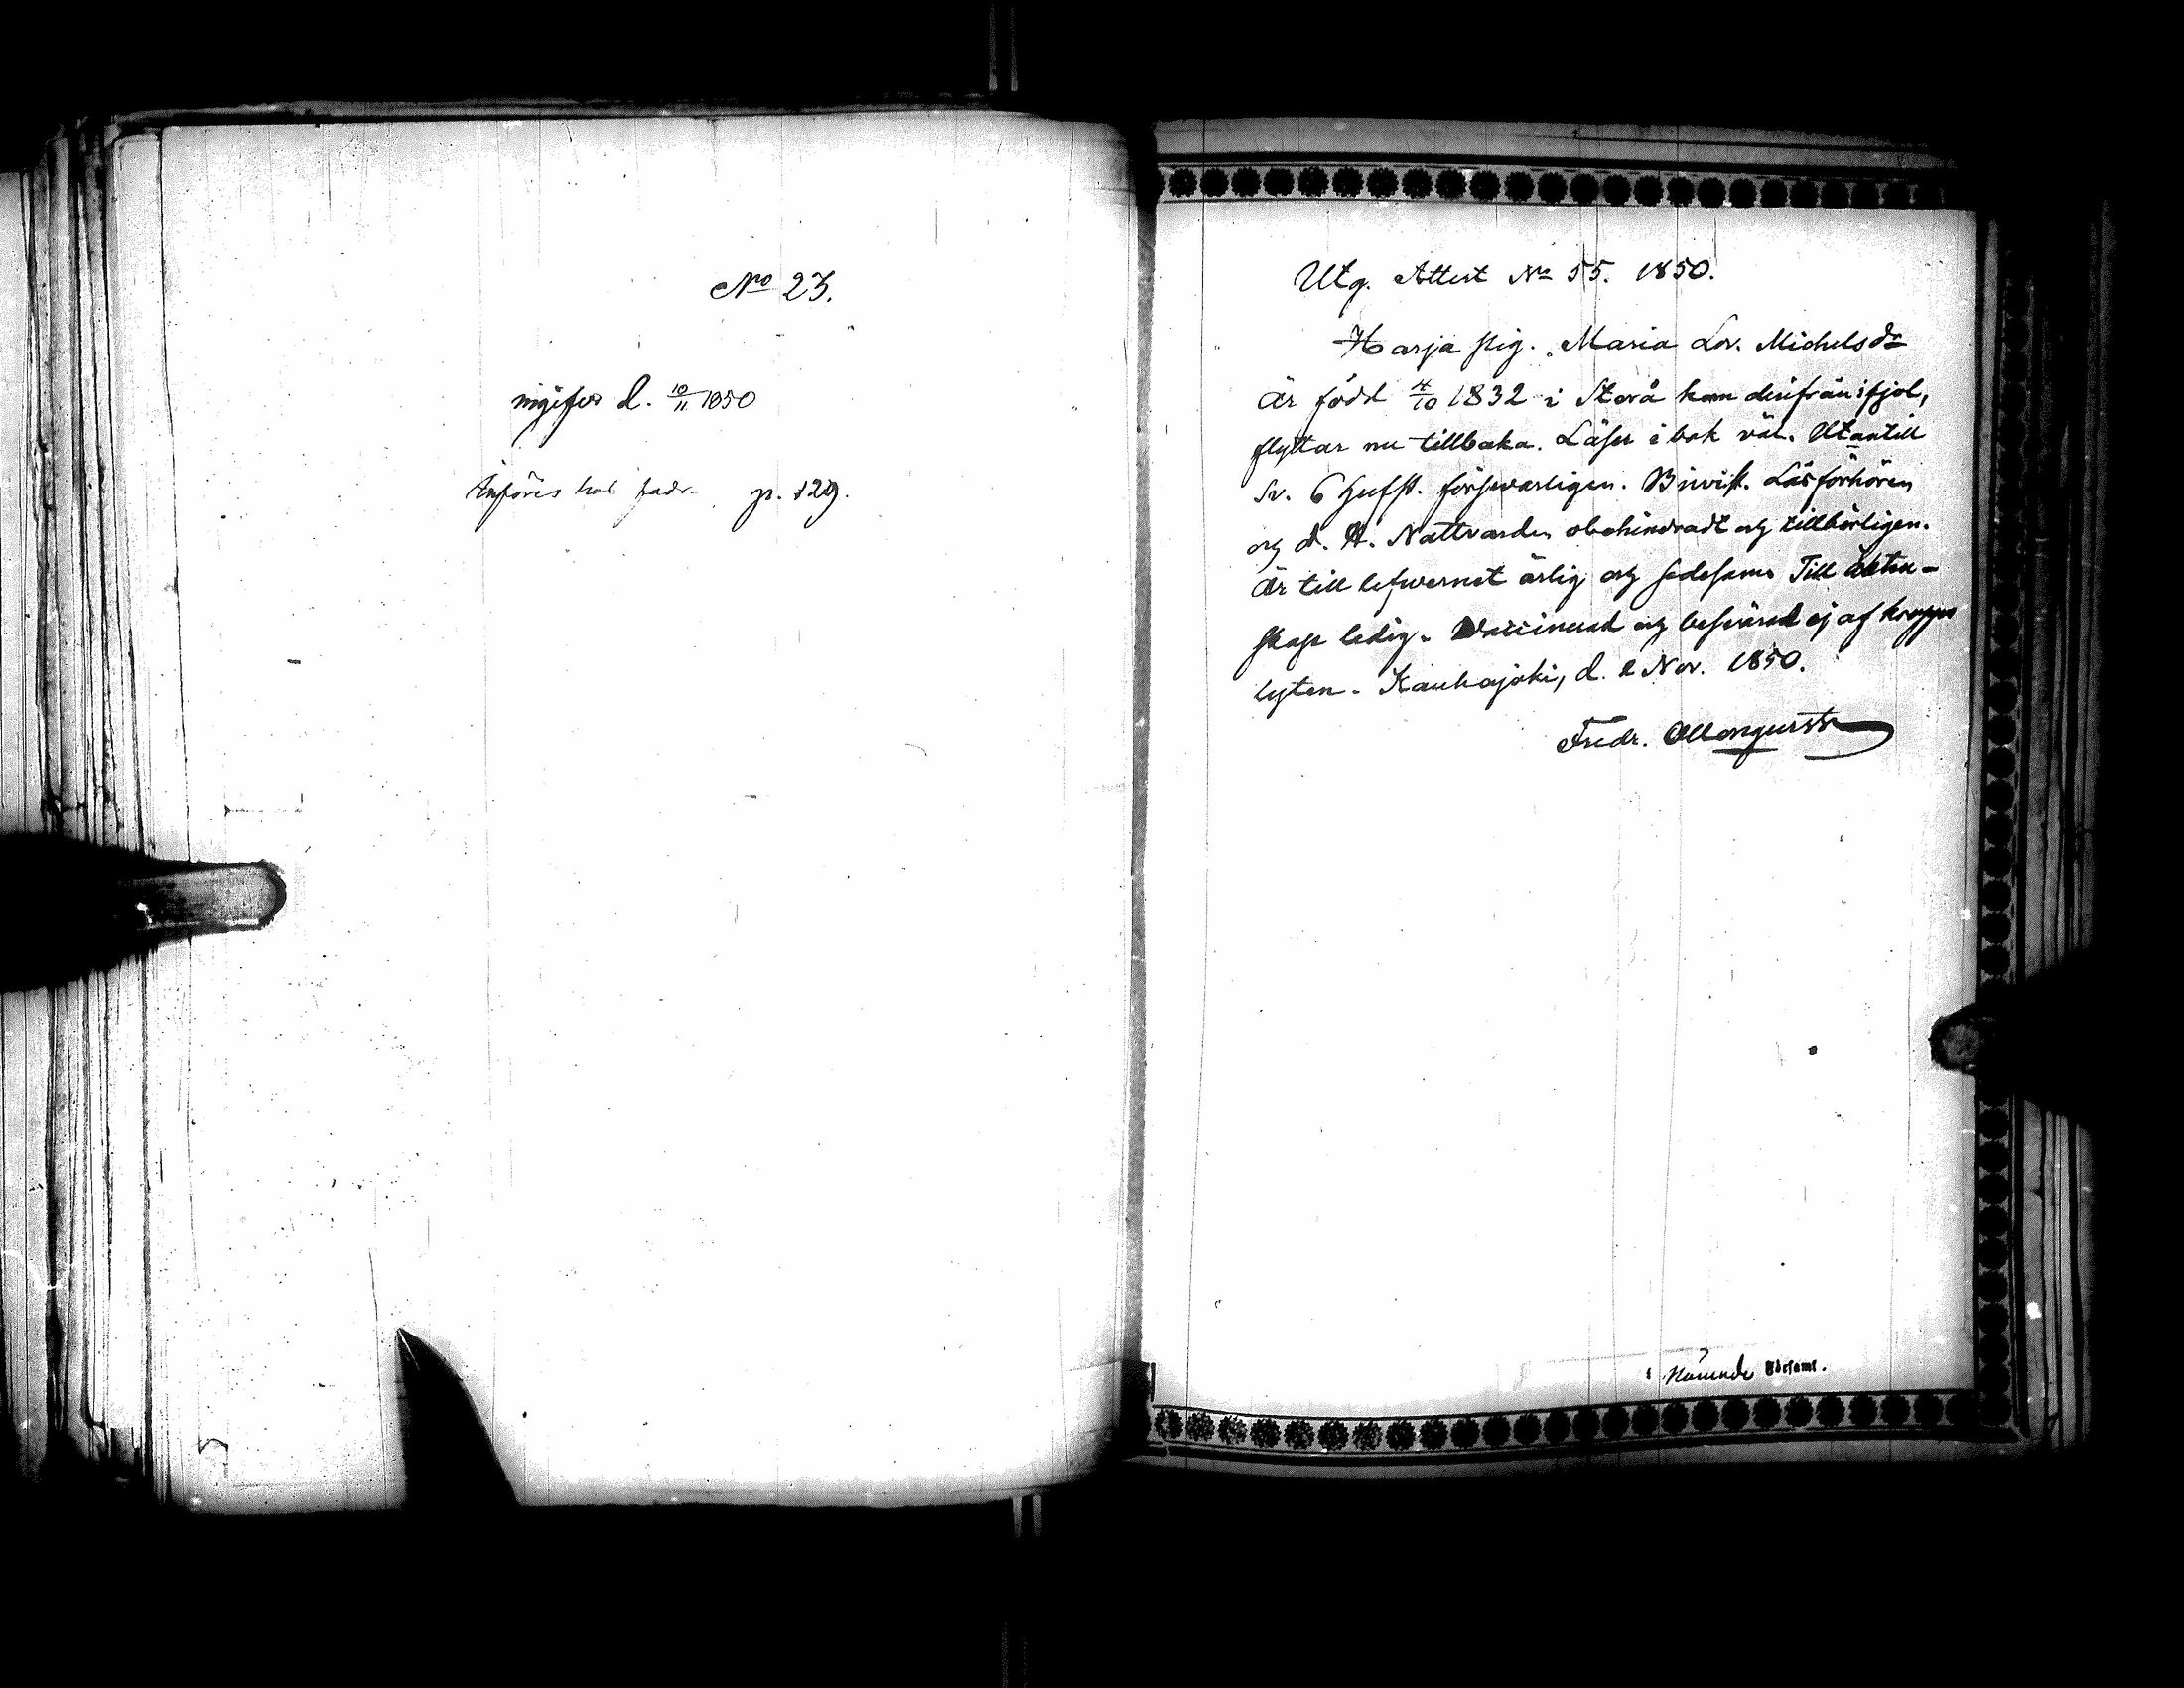 No 23.
d. 10/11 1850
Införes hos p. 129.
Utg. Attest No 55. 1850.
Harja pig. Maria Lov. Michelsdr
Är född 4/10 1832 i Storå kom derifrån i fjol,
flyttar nu tillbaka. Läser i bok väl. Utantill
Sv. 6 Hufst. försvarligen. Bivist. Läsförhören
och d. H. Nattvarden obehindradt och tillbörligen.
Är till lefvernet ärlig och sedesam. Till äkten-
skap ledig. Vaccinerad och besvärad ej af kropps
lyten. Kauhajoki, d. 2 Nov. 1850.
Fredr.
i Församl.